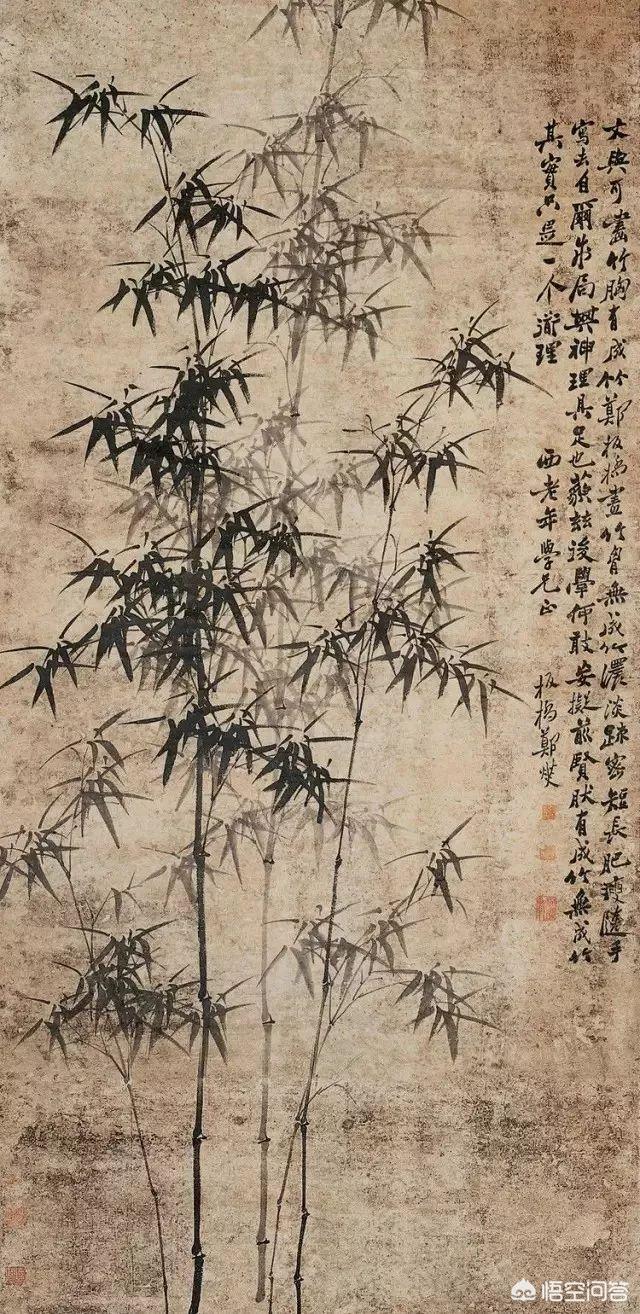 文與可畫竹胸有成竹鄭板橋畫竹胷無成竹濃淡疎密短長肥瘦隨手
寫去自爾成局其神理具足也藐玆後學何敢妄擬前賢肰有成竹無成竹
其實只是一个道理
西老年學兄正
板橋鄭燮
悟空问答